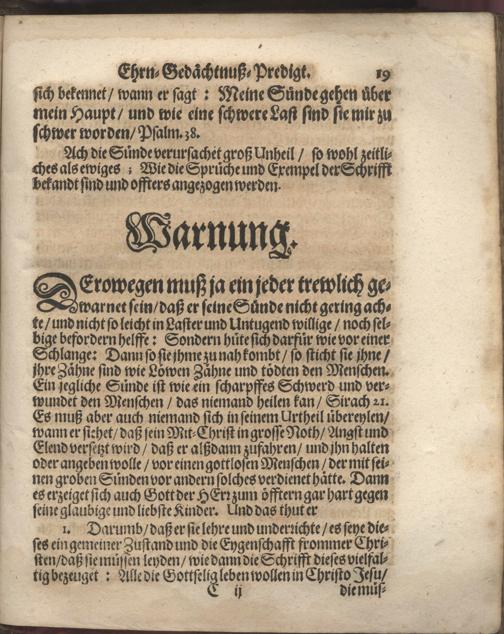 Ehrn-Gedächtnuß-Predigt. 19
sich bekennet/ wann er sagt : Meine Sünde gehen über
mein Haupt/ und wie eine schwere Last sind sie mir zu
schwer worden/ Psalm. 38.
Ach die Sünde verursachet groß Unheil / so wohl zeitli-
ches als ewiges ; Wie die Sprüche und Exempel der Schrifft
bekandt sind und offters angezogen werden.
Warnung.
DErowegen muß ja ein jeder trewlich ge-
warnet sein/ daß er seine Sünde nicht gering ach-
te/ und nicht so leicht in Laster und Untugend willige / noch sel-
bige befordern helffe : Sondern hüte sich darfür wie vor einer
Schlange: Dann so sie jhme zu nah kombt/ so sticht sie jhne/
jhre Zähne sind wie Löwen Zähne und tödten den Menschen.
Ein jegliche Sünde ist wie ein scharpffes Schwerd und ver-
wundet den Menschen / das niemand heilen kan/ Sirach 21.
Es muß aber auch niemand sich in seinem Urtheil übereylen/
wann er sihet/ daß sein Mit-Christ in grosse Noth/ Angst und
Elend versetzt wird/ daß er alßdann zufahren/ und jhn halten
oder angeben wolle / vor einen gottlosen Menschen / der mit sei-
nen groben Sünden vor andern solches verdienet hätte. Dann
es erzeiget sich auch Gott der HErr zum öfftern gar hart gegen
seine glaubige und liebste Kinder. Und das thut er
1. Darumb/ daß er sie lehre und underrichte / es seye die-
ses ein gemeiner Zustand und die Eygenschafft frommer Chri-
sten/ daß sie müssen leyden/ wie dann die Schrifft dieses vielfäl-
tig bezeuget : Alle die Gottselig leben wollen in Christo Jesu/
C ij die müs-